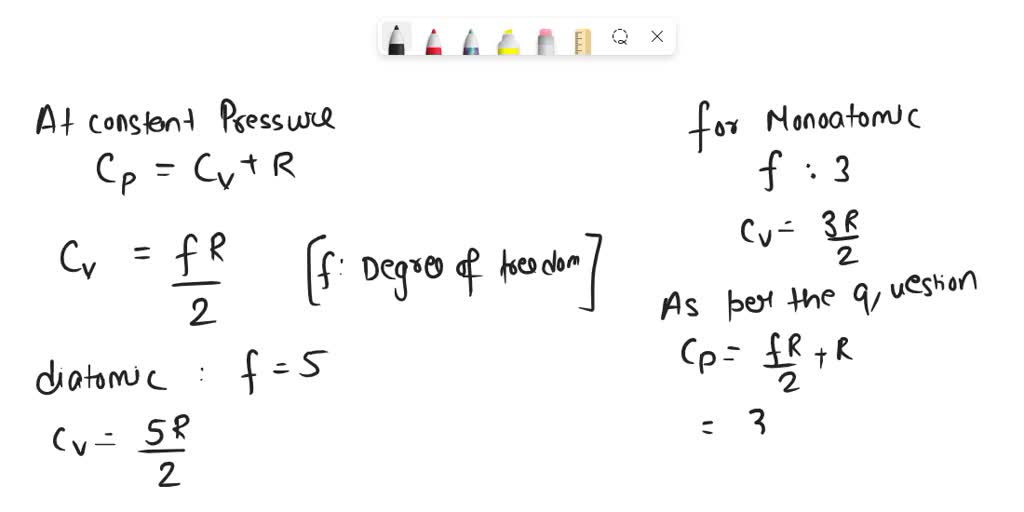 At constent Pressure
Cp = Cv + R
Cv = fR/2 [f: Degree of freedom]
diatomic : f = 5
Cv = 5R/2
for Monoatomic
f : 3
Cv = 3R/2
As per the question
Cp = fR/2 + R
= 3